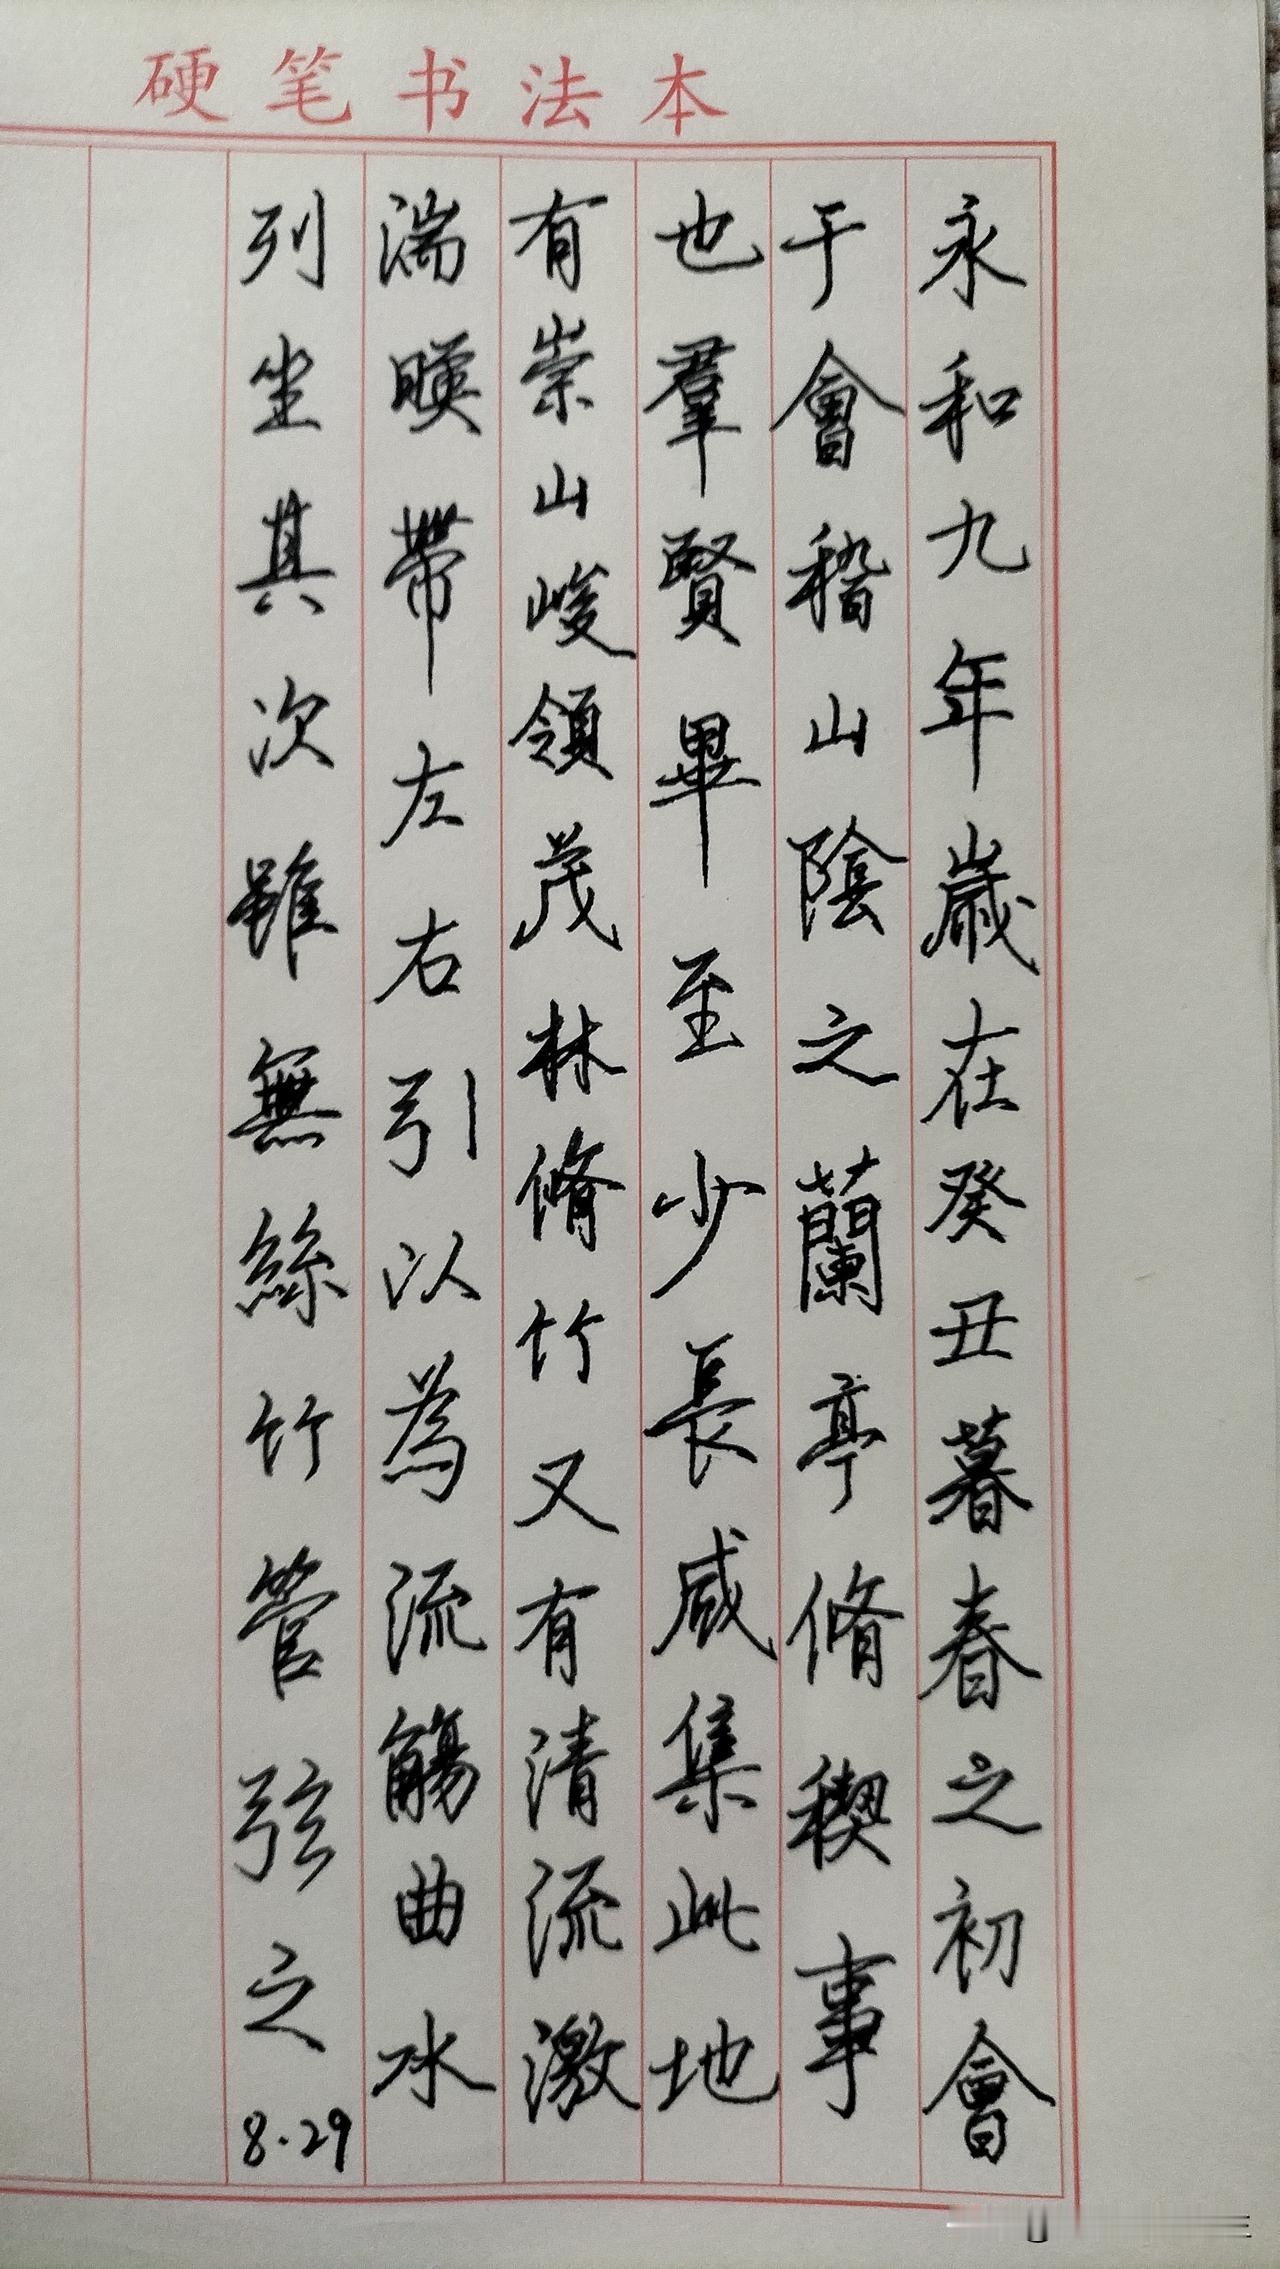 硬笔书法本
永和九年歲在癸丑暮春之初會
于會稽山陰之蘭亭脩稧事
也羣賢畢至少長咸集此地
有崇山峻領茂林脩竹又有清流激
湍暎帶左右引以為流觴曲水
列坐其次雖無絲竹管弦之
8.29